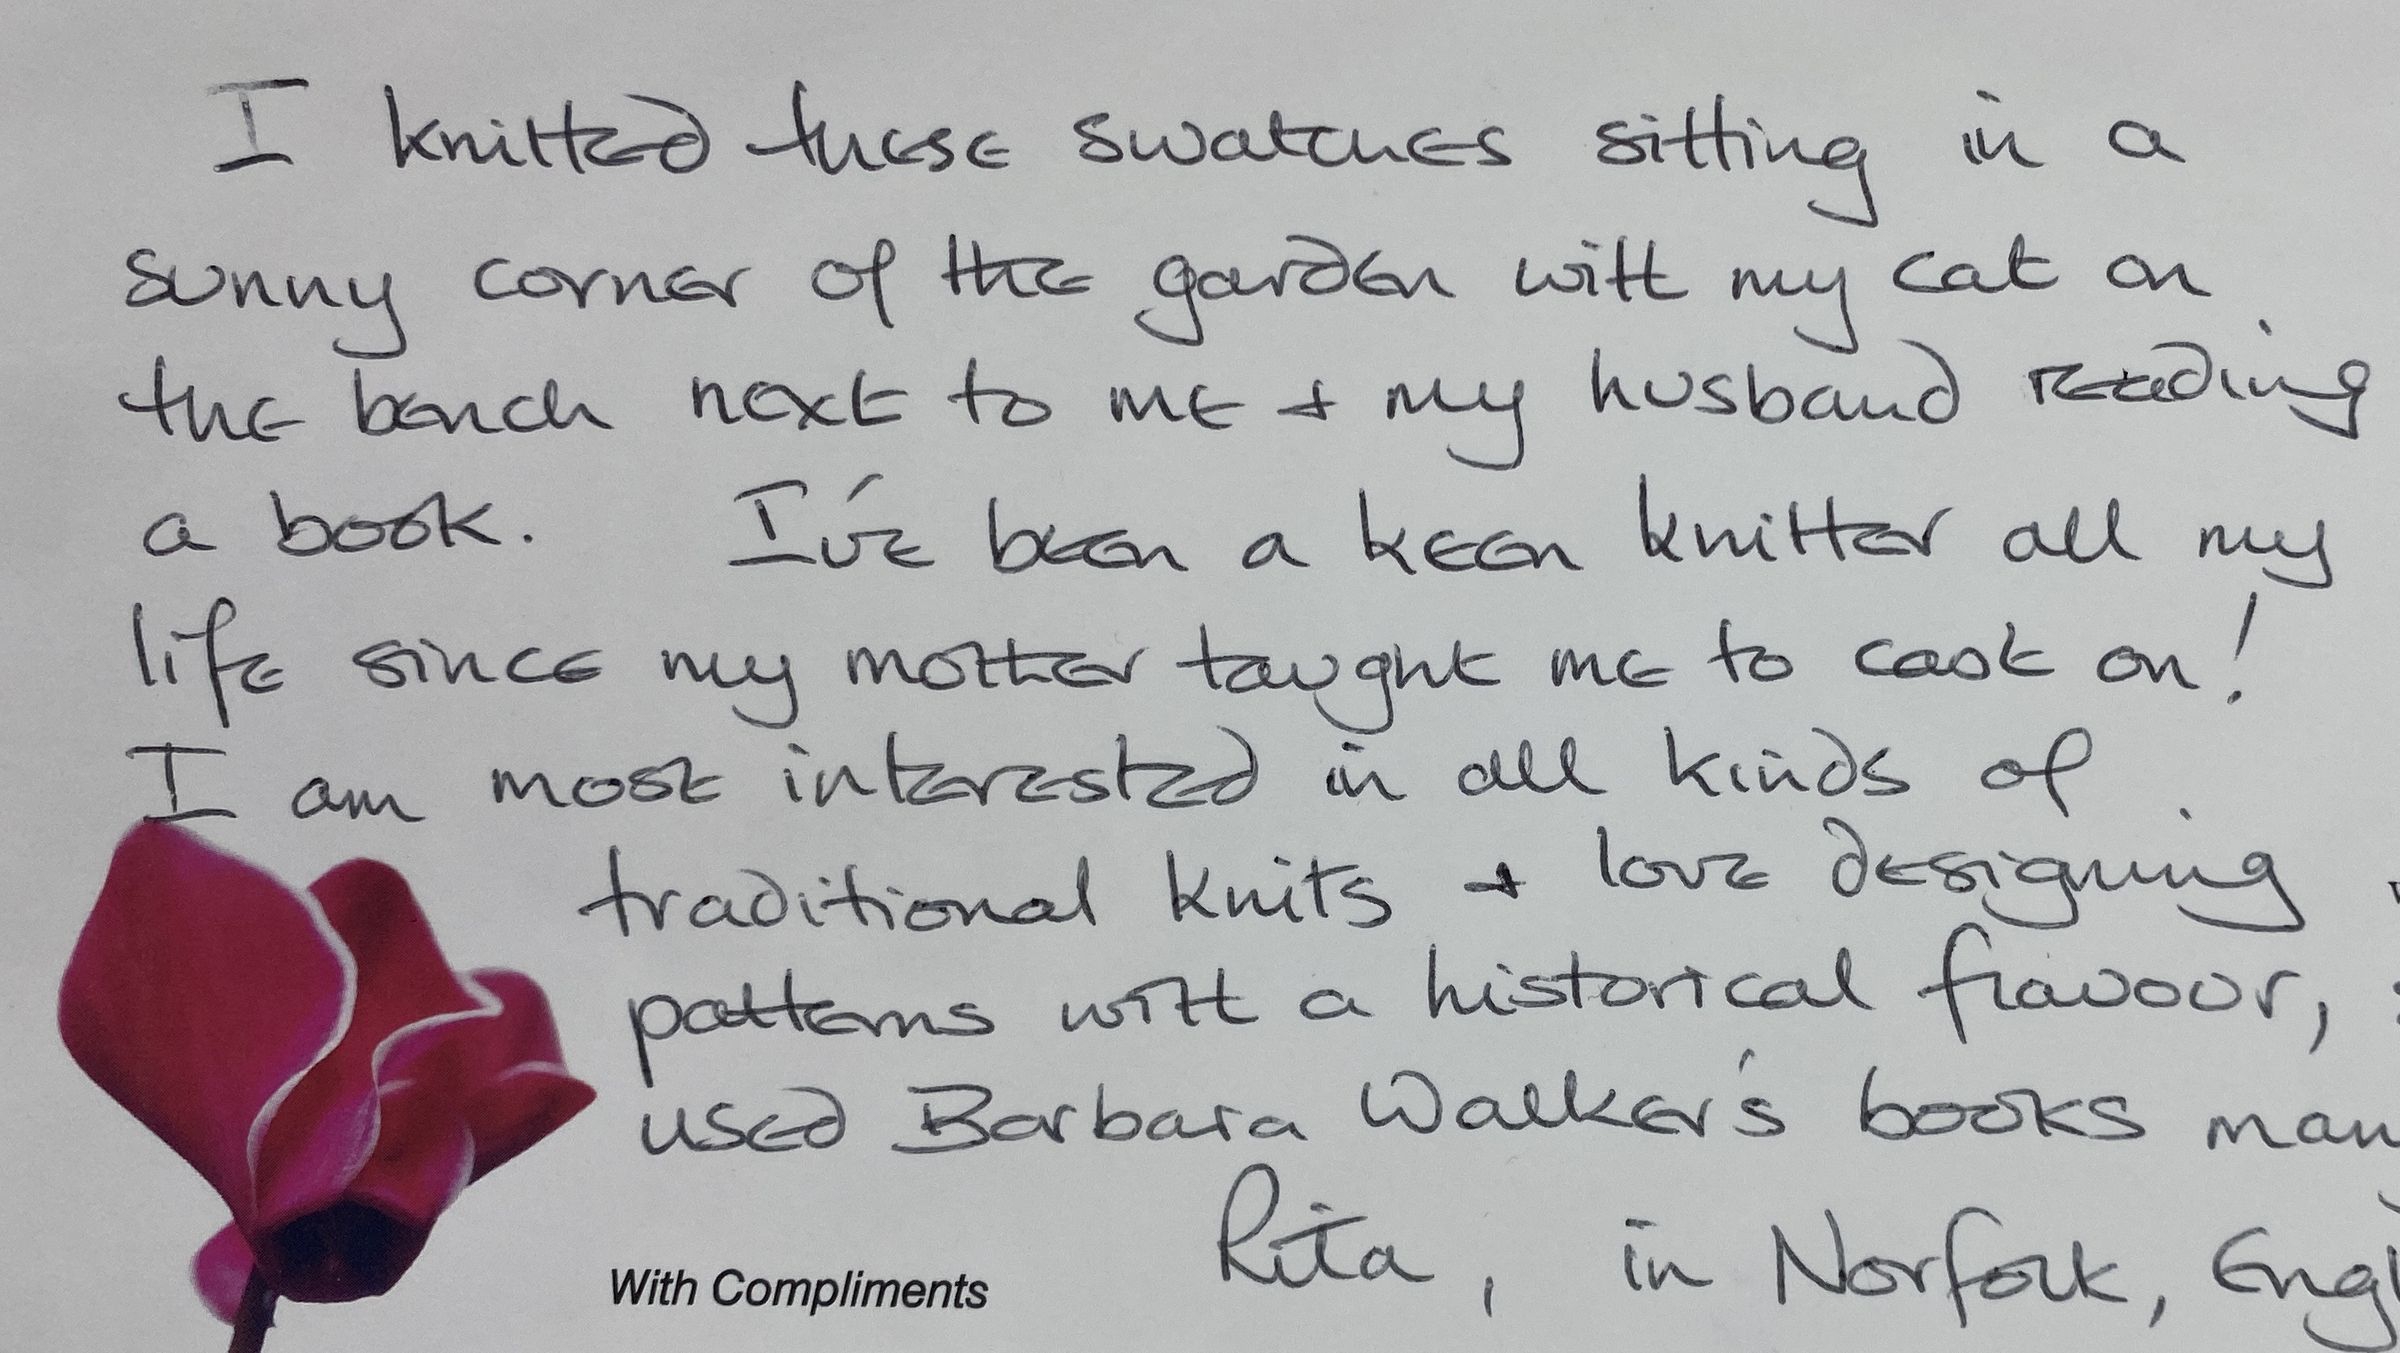 I knitted these swatches sitting in a
sunny corner of the garden with my cat on
the bench next to me + my husband reading
a book. I've been a keen knitter all my
life since my mother taught me to cast on!
I am most interested in all kinds of
traditional knits + love designing
patterns with a historical flavour,
used Barbara Walker's books
Rita, in Norfolk,
With Compliments